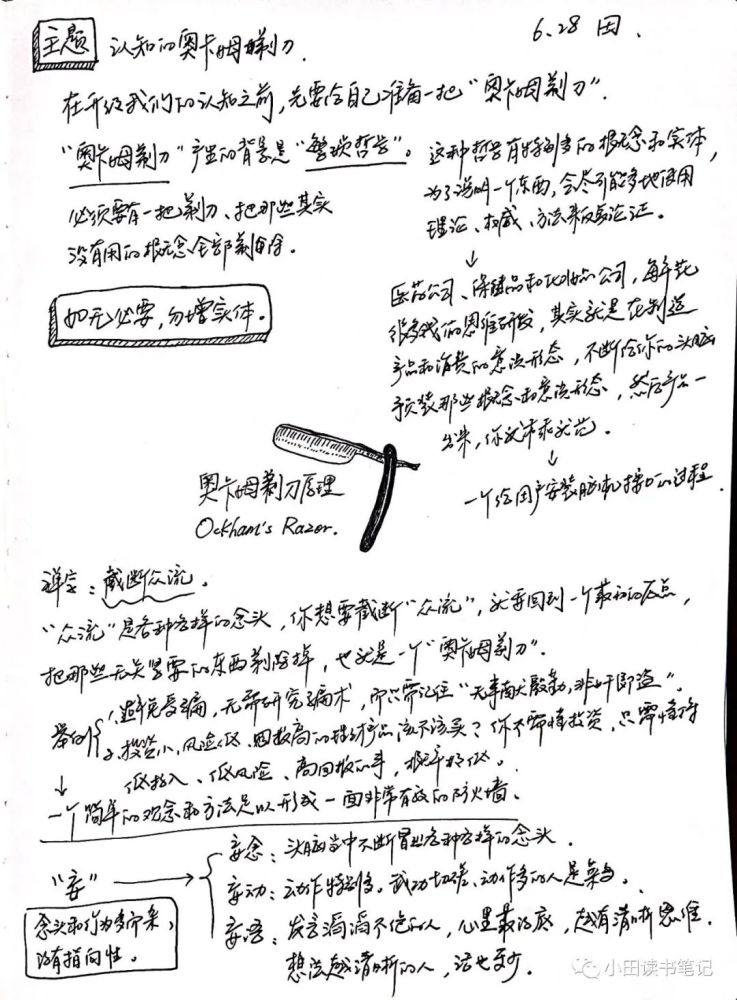 主题 认知的奥卡姆剃刀. 6.28 田.
在升级我们的认知之前，先要给自己准备一把“奥卡姆剃刀”.
“奥卡姆剃刀”产生的背景是“繁琐哲学”。
必须要有一把剃刀、把那些其实
没有用的概念全部剃除.
如无必要，勿增实体.
这种哲学有特别多的概念和实体，
为了说明一个东西，会尽可能多地使用
理论、权威、方法来反复论证.
↓
医药公司、保健品和化妆品公司，每年花
很多钱的思维研发，其实就是在制造
产品和消费的意识形态，不断给你的头脑
预装那些概念和意识形态，然后产品一
出来，你就乖乖就范.
↓
一个给用户安装脑机接口的过程.
奥卡姆剃刀原理
Ockham's Razor.
禅宗：截断众流.
“众流”是各种各样的念头，你想要截断“众流”，就要回到一个最初的原点，
把那些无关紧要的东西剃除掉，也就是一个“奥卡姆剃刀”.
举例 1.避免受骗，无需研究骗术，而只需记住“无事献殷勤，非奸即盗”.
2.投资小，风险低、回报高的理财产品应不应该买？你不需懂投资，只需懂得
低投入、低风险、高回报的事，概率极低.
↓
一个简单的观念和方法足以形成一面非常有效的防火墙.
“妄” →
念头和行为多而杂，
没有指向性.
妄念：头脑当中不断冒出各种各样的念头.
妄动：动作特别多。武功切磋、动作多的人是菜鸟.
妄语：发言滔滔不绝的人，心里最没底，越有清晰思维.
想法越清晰的人，话也更少.
小田读书笔记